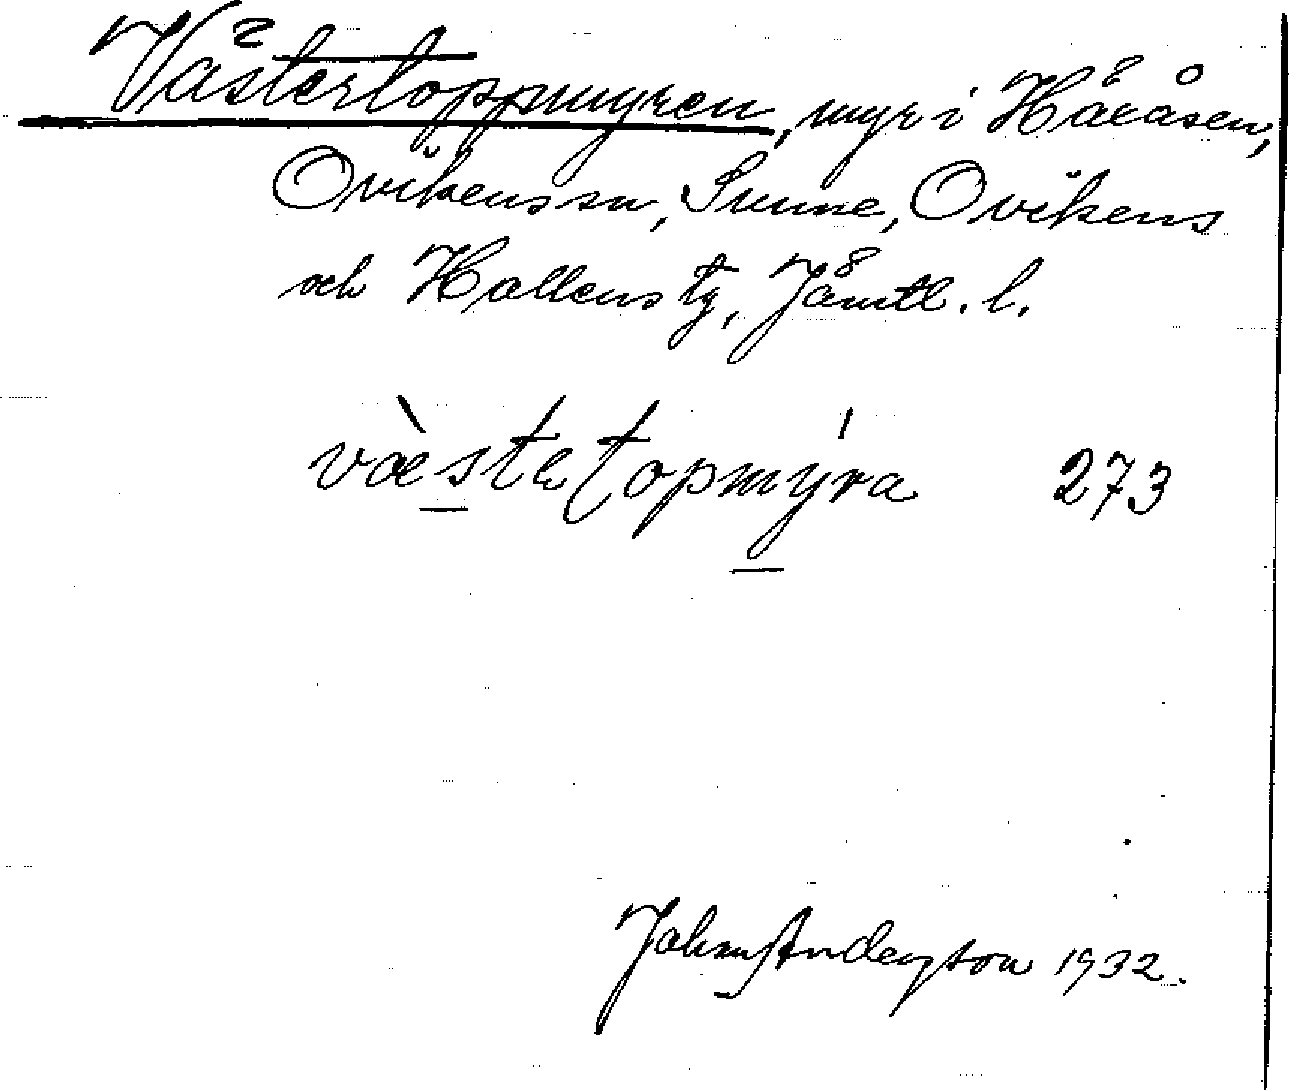 Västertoppmyren, myr i Håråsen,
Ovikens sn, Sunne, Ovikens
och Hallens tg, Jämtl. l.
væstetopmýra 273
Johan Anderson 1932.